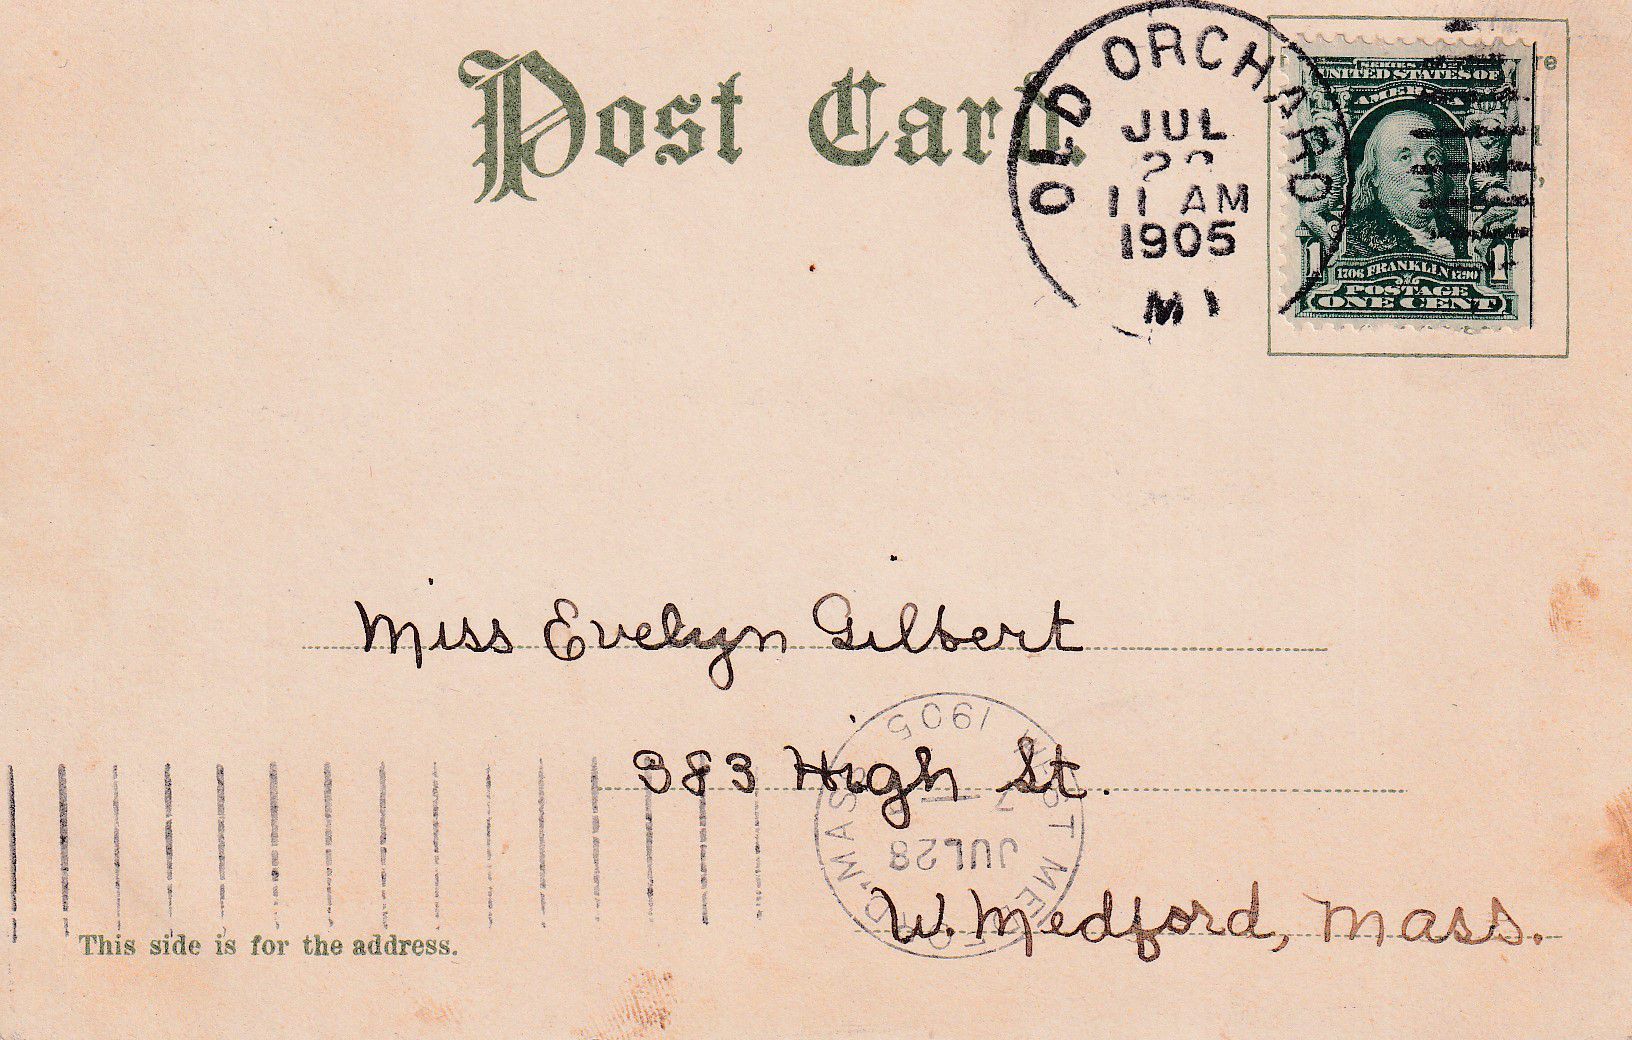 Post Card.
OLD ORCHARD
JUL
11 AM
1905
SERIES 1902
UNITED STATES OF
AMERICA
1 1
1706 FRANKLIN 1790
POSTAGE
ONE CENT
Miss Evelyn Gilbert
383 High St.
W. Medford, Mass.
WEST MEDFORD, MASS.
JUL 28
7
1905
This side is for the address.